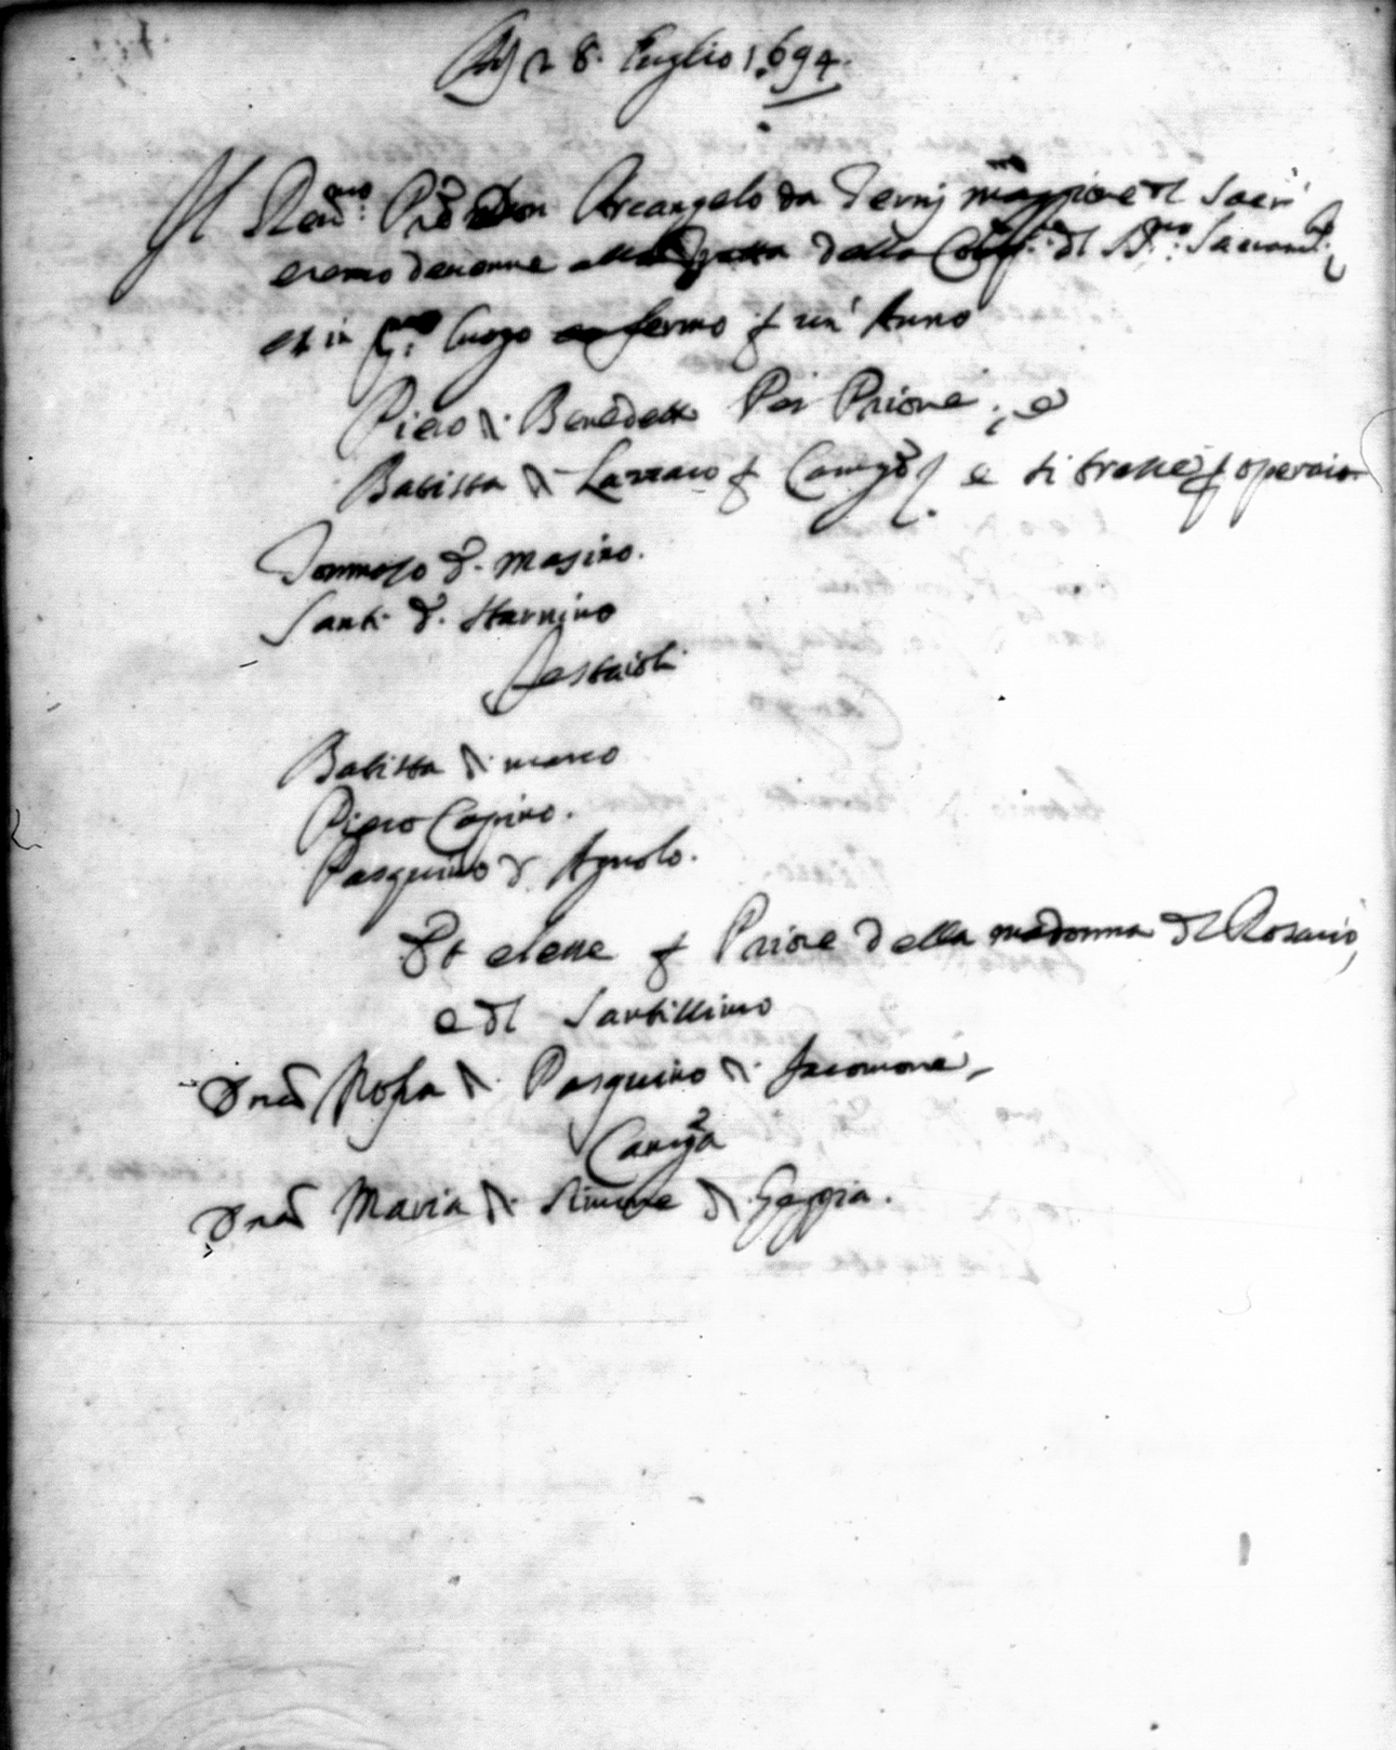 A dì 8. Luglio 1694.
Il Rend.mo Prē Don Arcangelo da Terni maggiore del Sacro
eremo devenne alla della Comp. del S.mo Sacram.
et in p.mo luogo confermo p un' Anno
Piero di Benedetto Per Priore, e
Batista di Lazzaro p Camgo e si trasse p operaio
Tommaso d. Masino.
Santi d. Starnino
Festaioli
Batista di marco
Piero Capino.
Pasquino d. Agnolo.
Et elesse p Priore della madonna del Rosario,
e del Santissimo
Dnā Rosa di Pasquino di Jacomone,
Camga
Dnā Maria di Simone di Geppia.